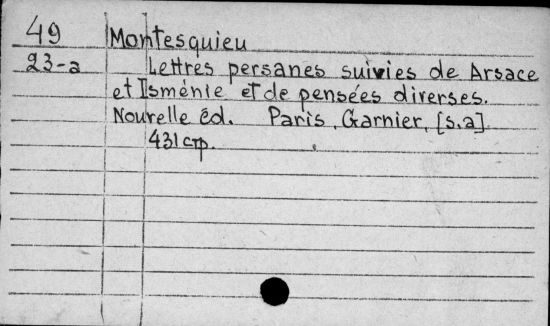 49 Montesquieu
23-a Lettres persanes suivies de Arsace
et Isménie et de pensées diverses.
Nouvelle éd. Paris, Garnier, [s.a]
431 стр.